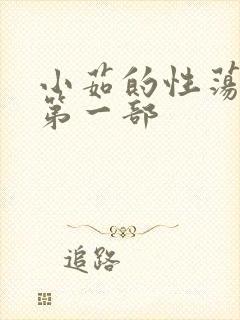 小茹的性荡
第一部
追路